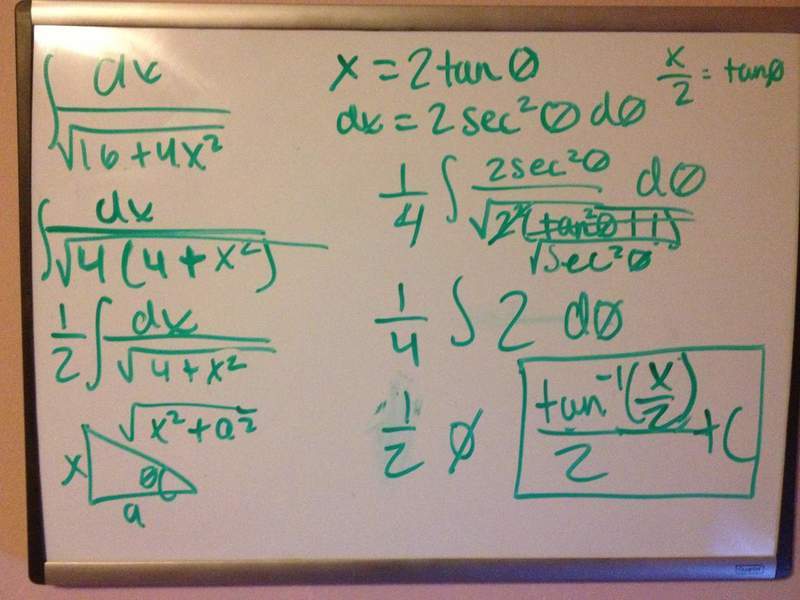 ∫ dx / √(16 + 4x²)
∫ dx / √(4(4 + x²))
1/2 ∫ dx / √(4 + x²)
√(x² + a²)
x
θ
a
x = 2 tan θ
x/2 = tan θ
dx = 2 sec² θ dθ
1/4 ∫ 2 sec² θ / √(2²(tan² θ + 1)) dθ
√sec² θ
1/4 ∫ 2 dθ
1/2 θ
tan⁻¹(x/2) / 2 + C